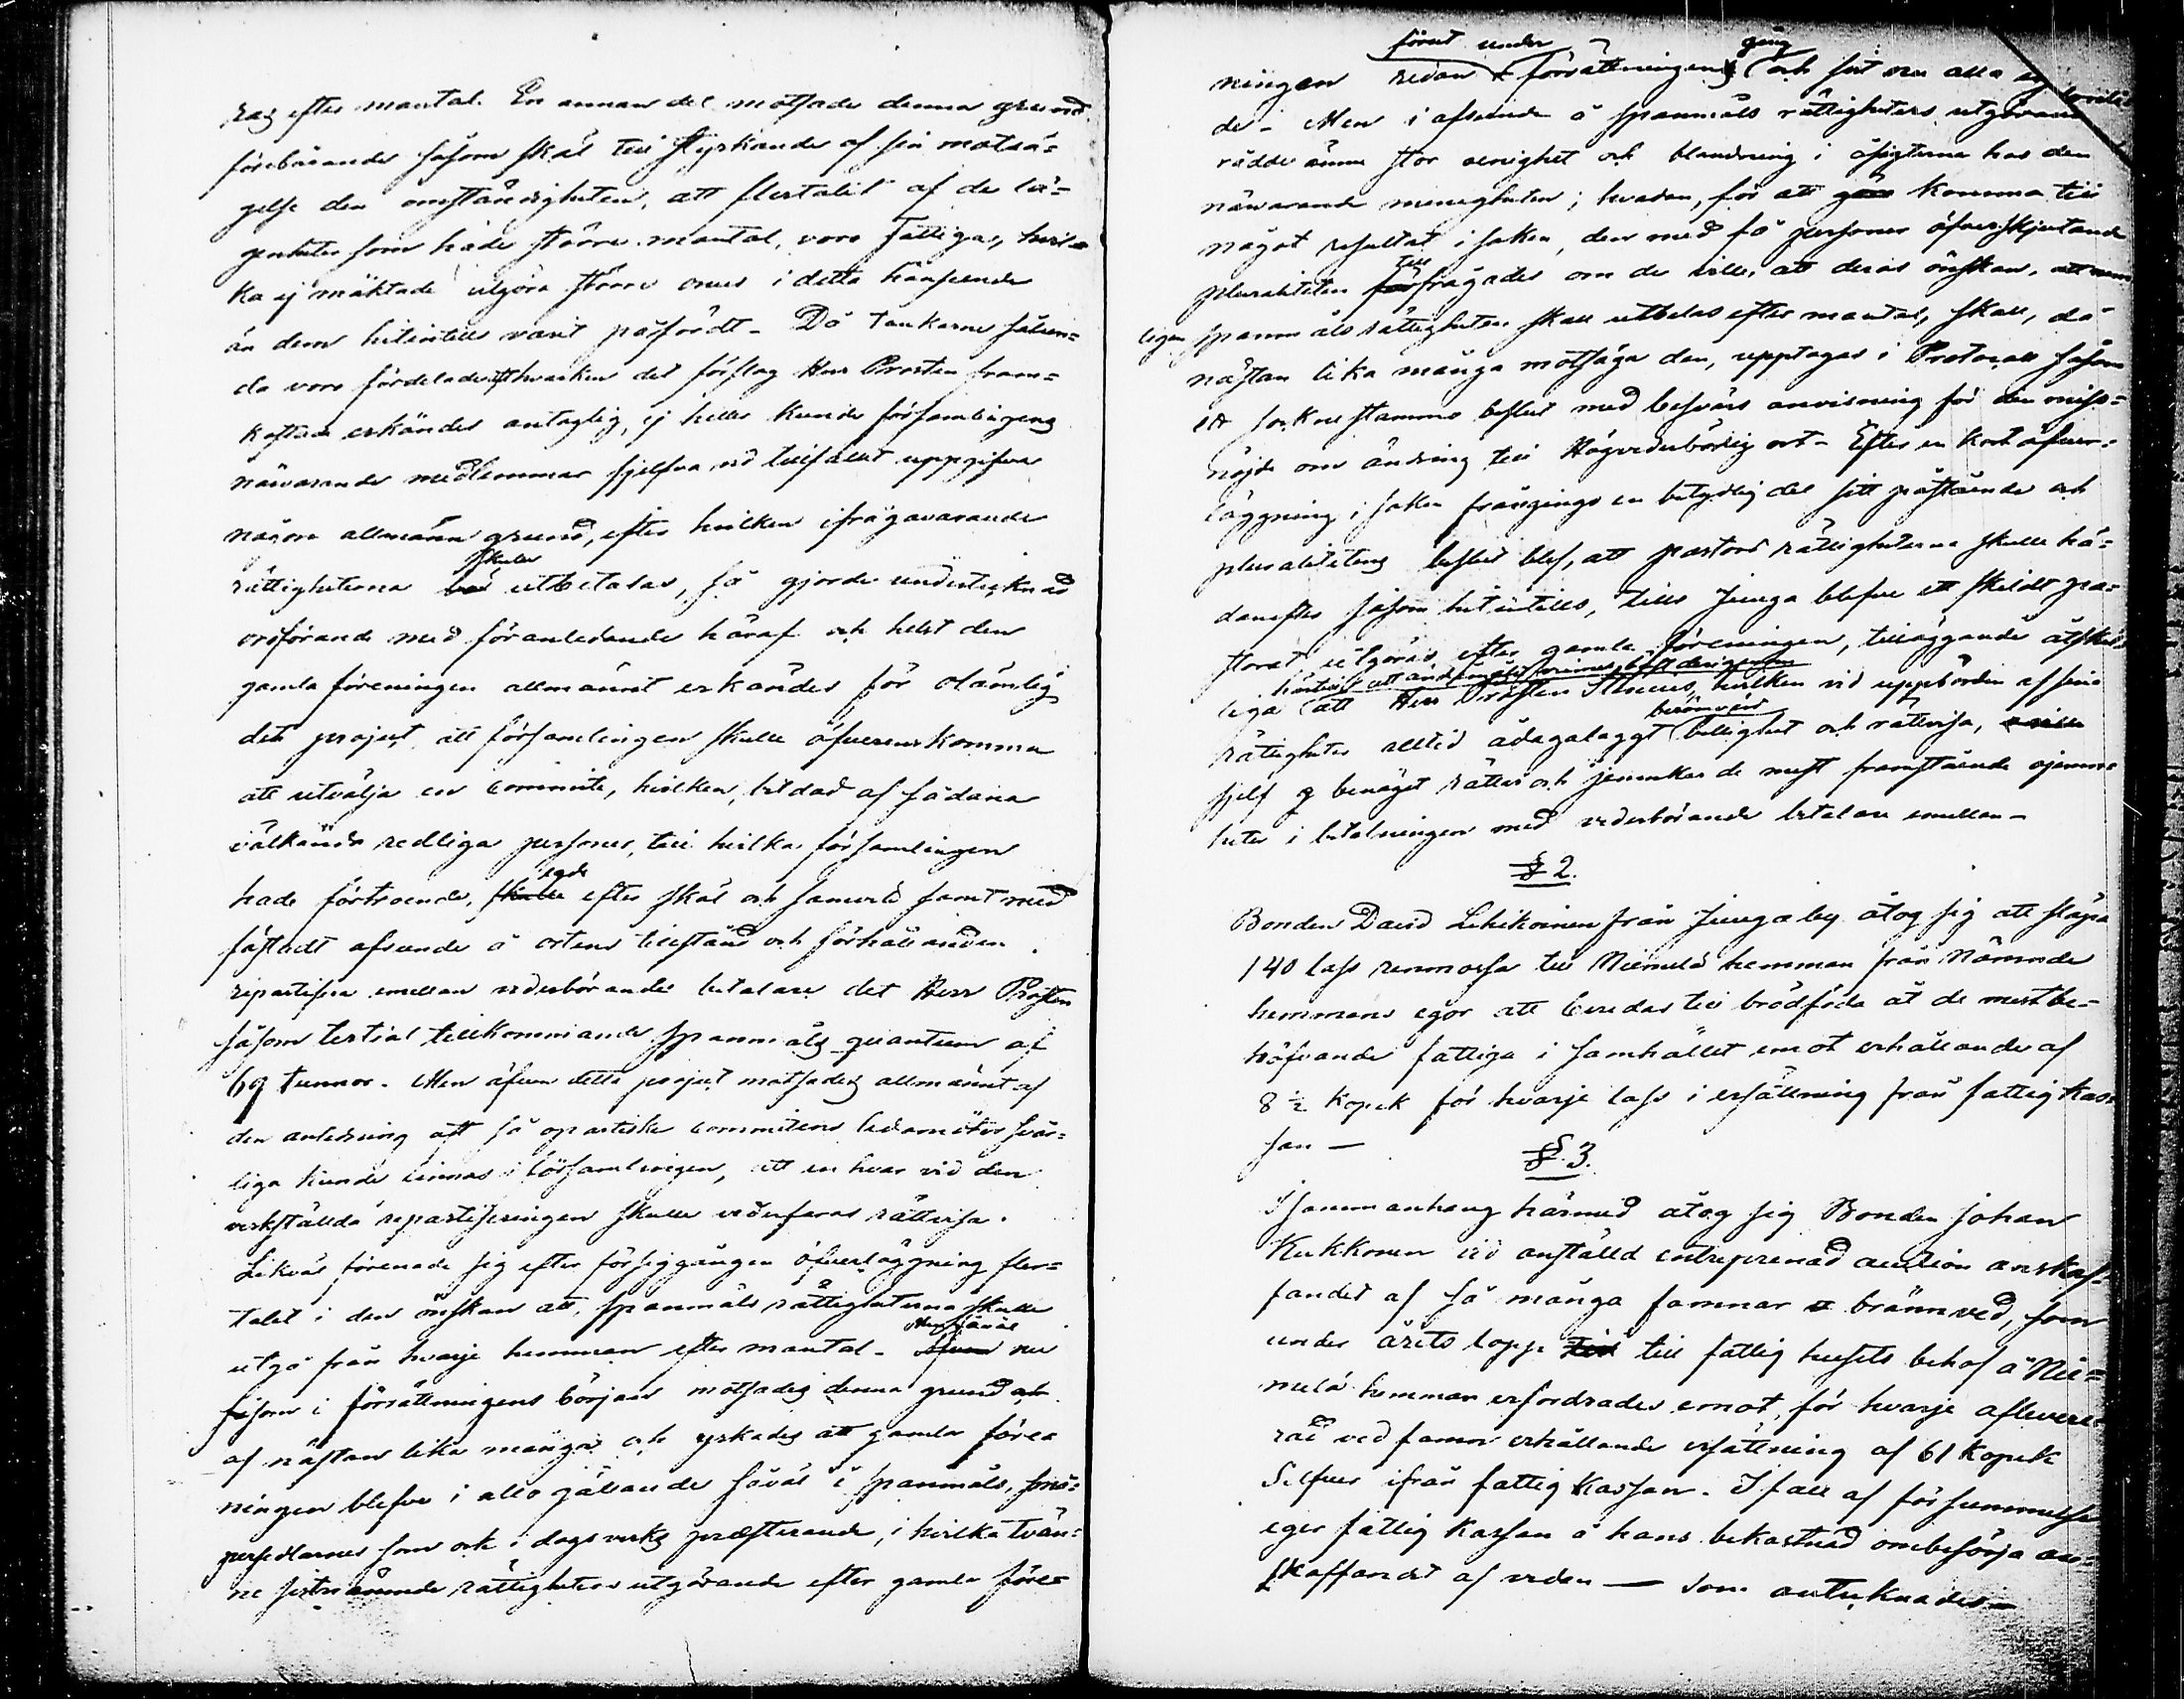 ras efter mantal. En annan del motsade denna grund
förebärande såsom skäl till styrkande af sin motsä-
gelse den omständigheten, att flertalet af de lä-
genheter som hade större mantal, voro fattigas, hvil-
ka ej mäktade utgöra större onus i detta hänseende
än dem hitintills varit påfördt. Då tankarne sålun-
da voro fördelade hvarken det förslag Herr Prosten fram-
kastade erkändes antaglig, ej heller kunde församlingens
närvarande medlemmar sjelfva vid tillfället uppgifva
någon allmän grund, efter hvilken ifrågavarande
skulle
rättigheterna utbetalas, så gjorde undertecknad
ordförande med föranledande häraf och helst den
gamla föreningen allmännt erkändes för olämlig
det project, att församlingen skulle öfverenskomma
att utvälja en committé, hvilken, bildad af sådana
välkända redliga personer, till hvilka församlingen
egde
hade förtroende, skulle efter skäl och samvete samt med
fästadt afseende å ortens tillstånd och förhållanden
repartisera emellan vederbörande betalare det Herr Prosten
såsom tertial tillkommande spanmåls quantum af
69 tunnor. Men äfven detta project motsades allmännt af
den anledning att så opartiske committens ledamöter svår-
liga kunde finnas i församlingen, att en hvar vid den
verkställda repartiseringen skulle vederfaras rättvisa.
Likväl förenade sig efter försiggången öfverläggning fler-
talet i den önskan att, spanmåls rättigheterna skulle
utgå från hvarje hemman efter mantal. nu
såsom i förrättningens början motsades denna grund
af nästan lika många och yrkades att gamla före-
ningen blefve i allo gällande såväl i spanmåls, små-
persedlarnes som och i dagsverks præsterande, i hvilka tvän-
ne sistnämnde rättigheters utgörande efter gamla före-
förut under gång
ningen redan förrättningens och sist nu alla
de. Men i afseende å spanmåls rättigheters utgörande
rådde ännu stor oenighet och blandning i åsigterna hos den
närvarande menigheten; hvadan, för att komma till
något resultat i saken, den med få personer öfverskjutande
till
pluraliteten frågades om de ville, att deras önskan, att nem-
ligen spanmåls rättigheten skall utbetalas efter mantal, skall, då
nästan lika många motsäga den, upptagas i Protocoll såsom
ett sockne stämmo beslut med besvärs anvisning för den miss-
nöjde om ändring till Högvederbörlig ort. Efter en kort öfver-
läggning i saken frångings en betydlig del sitt påstående och
pluralitetens beslut blef, att pastors rättigheterna skulle hä-
danefter såsom hitintills, tills Junga blefve ett skildt pa-
storat utgöras efter gamla föreningen, tilläggande åtskil-
liga att Herr Prosten hvilken vid uppbörden af sina
berömvärd
rättigheter alltid ådagalaggt billighet och rättvisa,
sjelf benäget rättar och jemnkar de mest framstående ojemn-
heter i betalningen med vederbörande betalare emellan.
§ 2.
Bonden David Lehikoinen från Junga by åtog sig att släpa
140 lass renmossa till Niemelä hemman från nämnde
hemmans egor att beredas till brödföda åt de mest be-
höfvande fattiga i samhället emot erhållande af
8 ½ kopek för hvarje lass i ersättning från fattigkas-
san —
§ 3.
I sammanhang härmed åtog sig Bonden Johan
Kukkonen vid anställd entreprenad auction anskaf-
fandet af så många famnar brännved, som
under årets lopp till fattig husets behof å Nie-
melä hemman erfordrades emot, för hvarje aflevere-
rad ved famn erhållande ersättning af 61 kopek
Silfver ifrån fattig kassan. I fall af försummelse
eger fattig kassan å hans bekostnad ombesörja an-
skaffandet af veden — som antecknades —